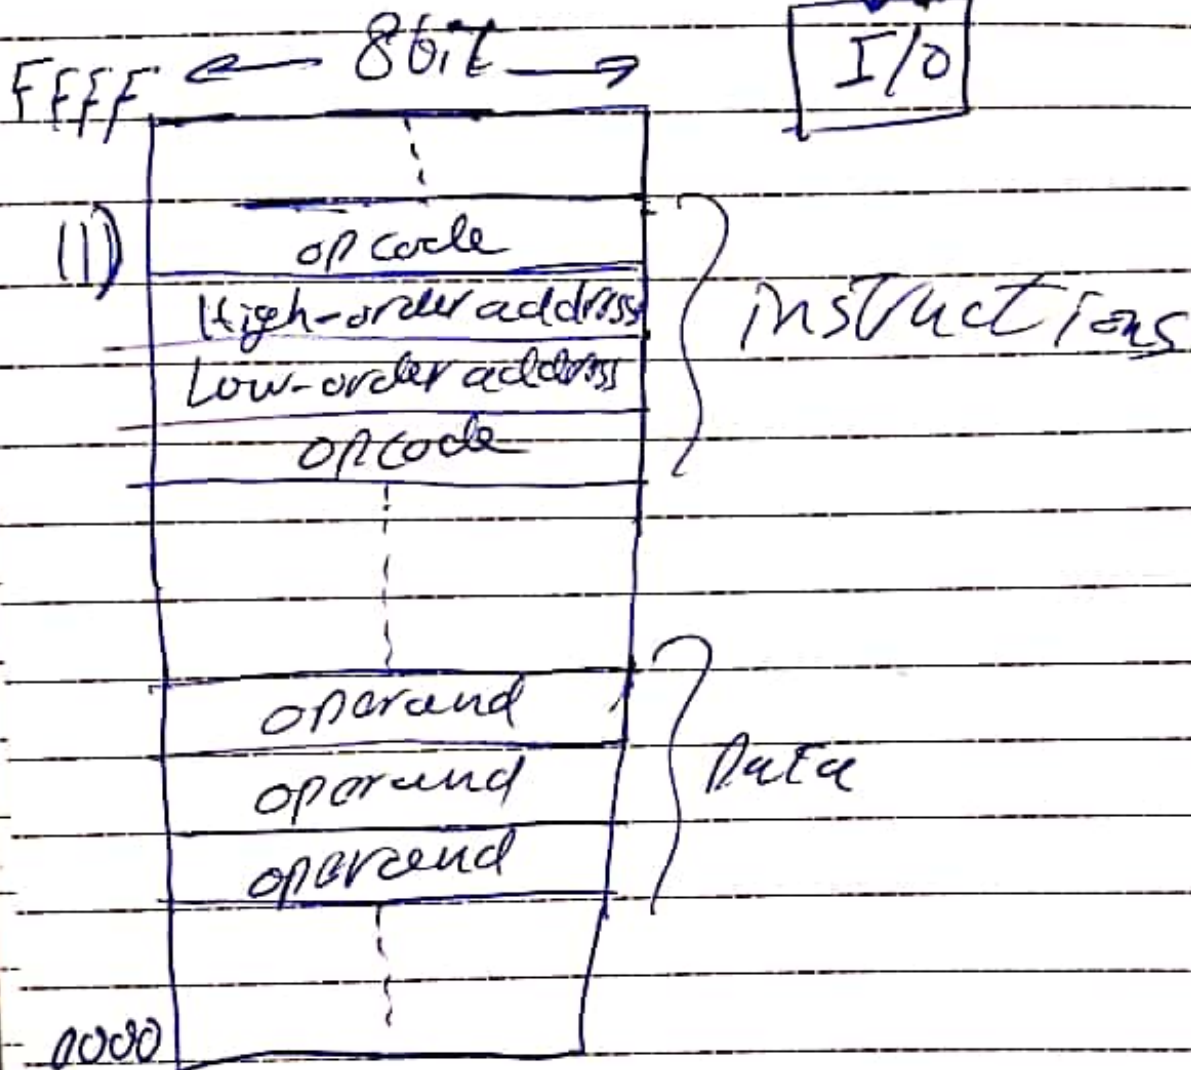 I/O
8bit
FFFF
(1)
opcode
High-order address
Low-order address
opcode
instructions
operand
operand
operand
Data
0000